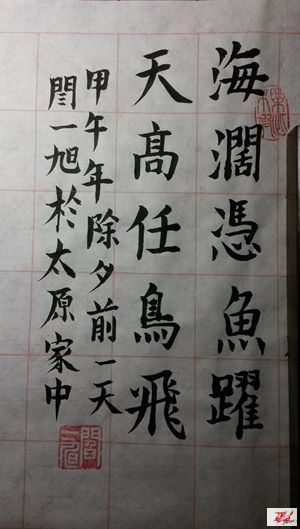 海濶憑魚躍
天高任鳥飛
甲午年除夕前一天
閆一旭於太原家中